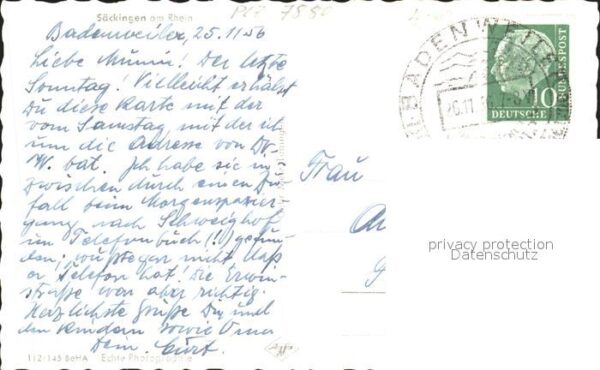 Säckingen am Rhein
Badenweiler, 25.11.56
Liebe Mimmi! Der letzte
Sonntag. Vielleicht erhälst
Du diese Karte mit der
vom Samstag, mit der ich
um die Adresse von Dr.
W. bat. Ich habe sie in-
zwischen durch einen Zu-
fall beim Morgenspazier-
gang nach Schweighof
im Telefonbuch (!!) gefun-
den; wußte gar nicht, daß
er Telefon hat! Die Erwin-
straße war aber richtig.
Herzlichste Grüße Dir und
den Kindern sowie Oma
Dein Curt.
112-145 BeHA Echte Photographie
Frau
BADENWEILER
10
DEUTSCHE
BUNDESPOST
privacy protection
Datenschutz